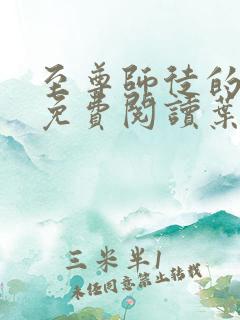 至尊師徒的
免費閱讀葉
三米半1
未經同意禁止轉載